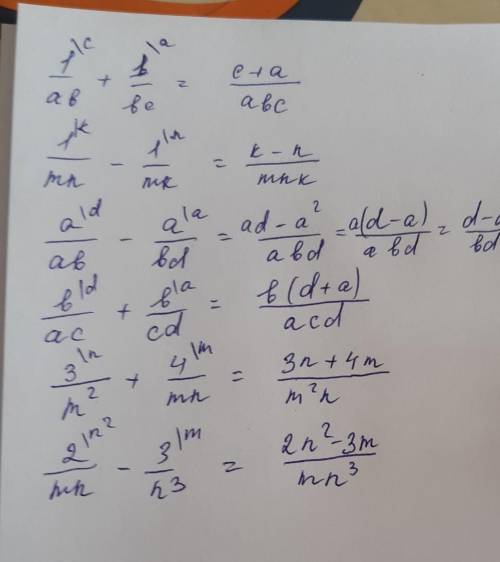 1\c/ab + 1\a/bc = (c+a)/abc
1\k/mn - 1\n/mk = (k-n)/mnk
a\d/ab - a\a/bd = (ad-a²)/abd = a(d-a)/abd = (d-a)/bd
b\d/ac + b\a/cd = b(d+a)/acd
3\n/m² + 4\m/mn = (3n+4m)/m²n
2\n²/mn - 3\m/n³ = (2n²-3m)/mn³